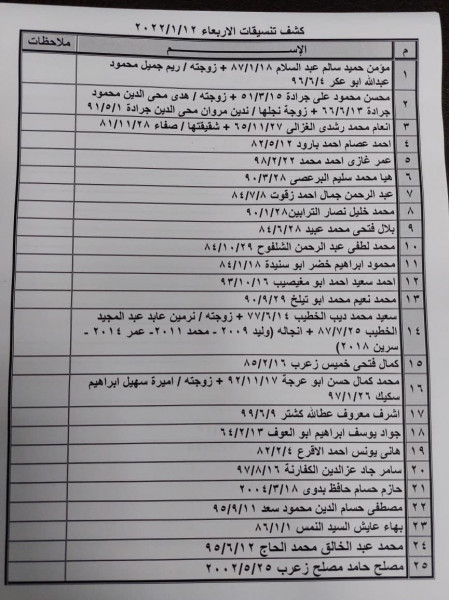 كشف تنسيقات الاربعاء ٢٠٢٢/١/١٢
م الإســـم ملاحظات
١ مؤمن حميد سالم عبد السلام ٨٧/١/١٨ + زوجته / ريم جميل محمود
عبدالله ابو عكر ٩٦/٦/٤
٢ محسن محمود على جرادة ٥١/٣/١٥ + زوجته / هدى محى الدين محمود
جرادة ٦٦/٦/١٣ + زوجة نجلها / ندين مروان محى الدين جرادة ٩١/٥/١
٣ انعام محمد رشدى الغزالى ٦٥/١١/٢٧ + شقيقتها / صفاء ٨١/١١/٢٨
٤ احمد عصام احمد بارود ٨٢/٥/١٢
٥ عمر غازى احمد محمد ٩٨/٢/٢٢
٦ هيا محمد سليم البرعصى ٩٠/٣/٢٨
٧ عبد الرحمن جمال احمد زقوت ٨٤/٧/٨
٨ محمد خليل نصار الترابين ٩٠/١/٢٨
٩ بلال فتحى محمد عبيد ٨٤/٦/٢٨
١٠ محمد لطفى عبد الرحمن الشلفوح ٨٤/١٠/٢٩
١١ محمود ابراهيم خضر ابو سنيدة ٨٤/١/١٨
١٢ احمد سعيد احمد ابو مغيصيب ٩٣/١٠/١٦
١٣ محمد نعيم محمد ابو تيلخ ٩٠/٩/٢٩
١٤ سعيد محمد ديب الخطيب ٧٧/٦/١٤ + زوجته / نرمين عابد عبد المجيد
الخطيب ٨٧/٧/٢٥ + انجاله (وليد ٢٠٠٩ - محمد ٢٠١١- عمر ٢٠١٤ -
سرين ٢٠١٨)
١٥ كمال فتحى خميس زعرب ٨٥/٢/١٦
١٦ محمد كمال حسن ابو عرجة ٩٢/١١/١٧ + زوجته / اميرة سهيل ابراهيم
سكيك ٩٧/١/٢٦
١٧ اشرف معروف عطالله كشتر ٩٩/٦/٩
١٨ جواد يوسف ابراهيم ابو العوف ٦٤/٢/١٣
١٩ هانى يونس احمد الاقرع ٨٢/٢/٤
٢٠ سامر جاد عزالدين الكفارنة ٩٧/٨/١٦
٢١ حازم حسام حافظ بدوى ٢٠٠٤/٣/١٨
٢٢ مصطفى حسام الدين محمود سعد ٩٥/٩/١١
٢٣ بهاء عايش السيد النمس ٨٦/١/١
٢٤ محمد عبد الخالق محمد الحاج ٩٥/٦/١٢
٢٥ مصلح حامد مصلح زعرب ٢٠٠٢/٥/٢٥